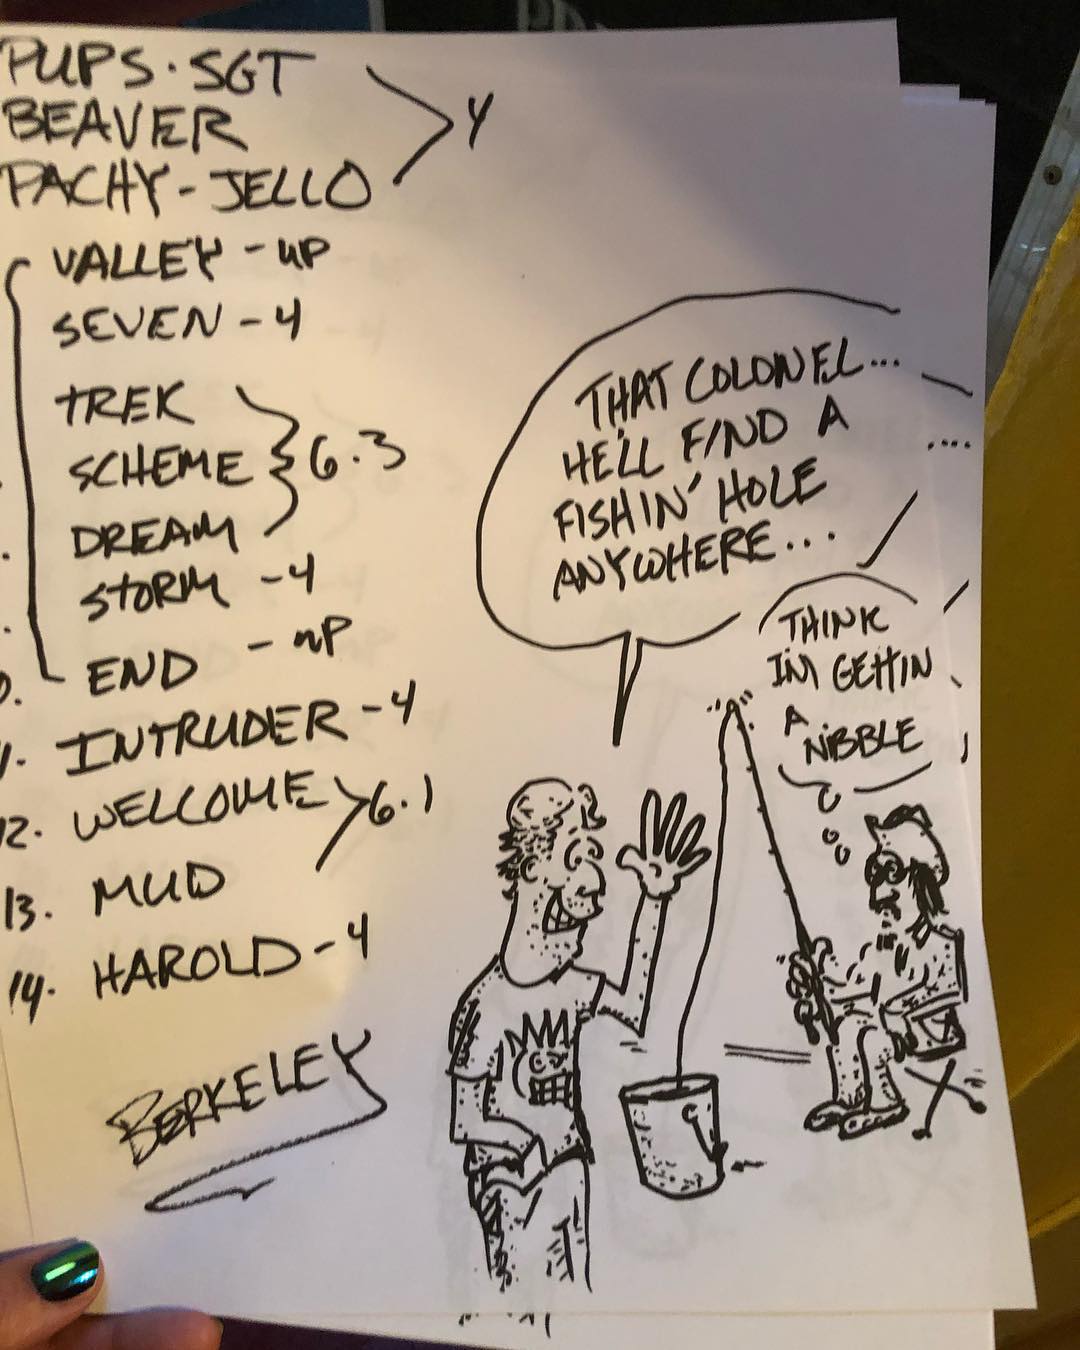 PUPS·SGT
BEAVER
PACHY-JELLO
> Y
VALLEY - UP
SEVEN - 4
TREK
SCHEME
DREAM
} 6.3
STORM - 4
END - UP
INTRUDER - 4
12. WELCOME
> 6.1
13. MUD
14. HAROLD - 4
BERKELEY
THAT COLONEL...
HE'LL FIND A
FISHIN' HOLE
ANYWHERE...
....
THINK
IM GETTIN
A
NIBBLE